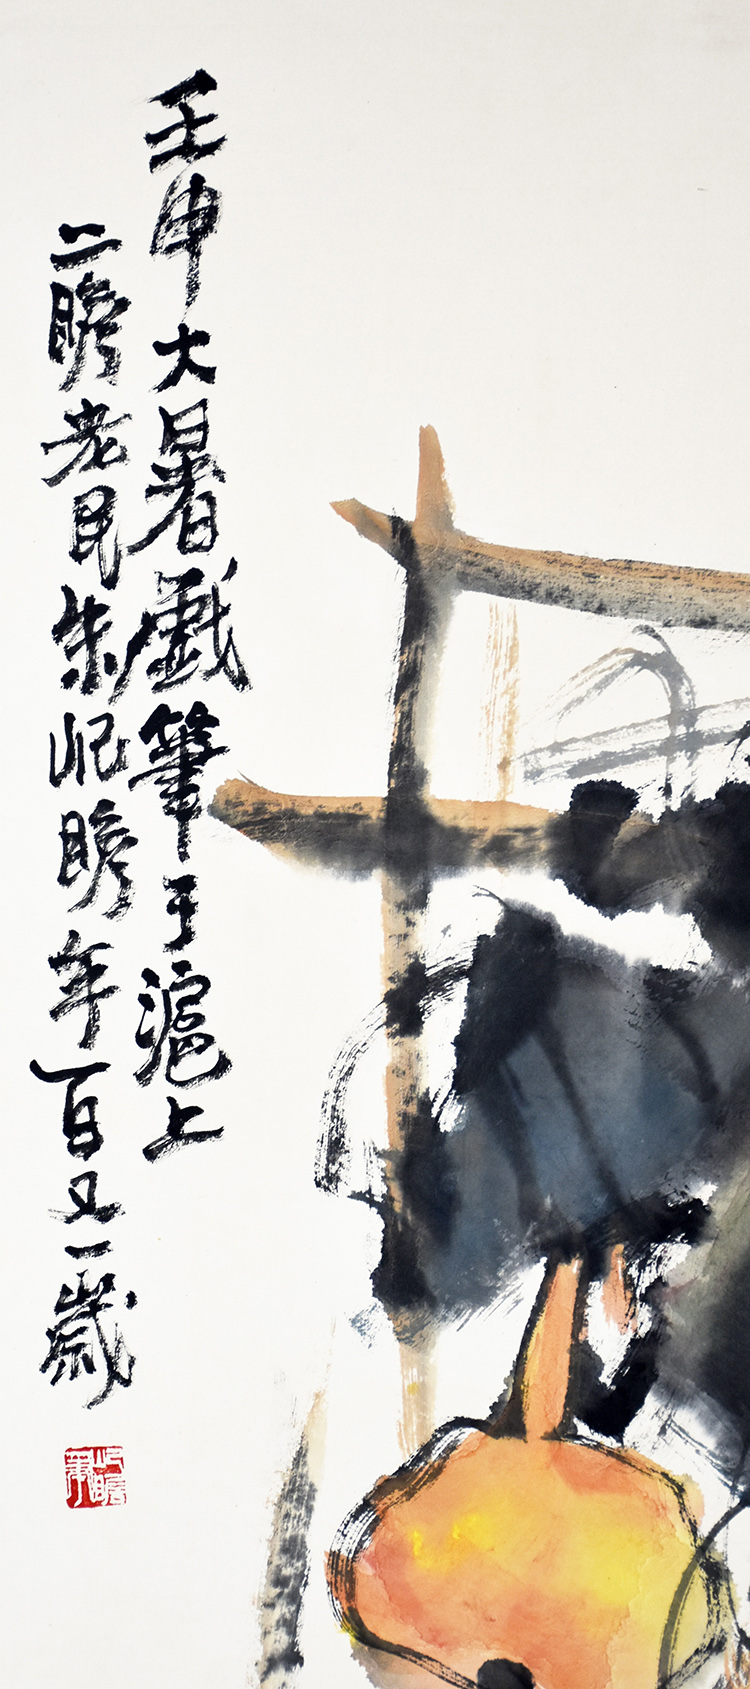 壬申大暑戲筆于滬上
二瞻老民朱屺瞻年百又一歲
屺瞻